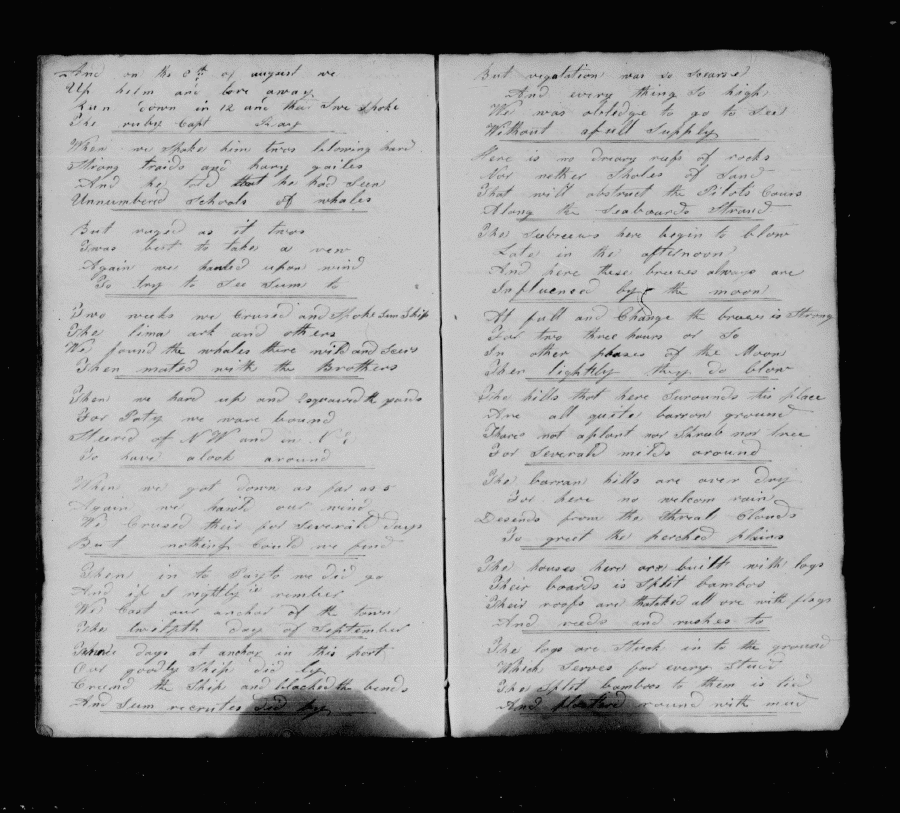 And on the 8th of august we
Up helm and bore away
Run down in 12 and thar we spoke
The ruby Capt Gray
When we Spoke him twos blowing hard
Strong traids and hevy gailes
And he told that he had Seen
Unnumbered Schools of whales
But ruged as it twos
Twas best to take a vew
Again we hauled upon wind
To try to See Sum to
Two weeks we Crused and Spoke Sum Ships
The lima ark and others
We found the whales there wild and
Then mated with the Brothers
Then we hard up and Sqeared the yards
For Paty we ware bound
Steerd of N W and in N
To have alook around
When we got down as far as 5
Again we hauld our wind
We Crused their for Severild days
But nothing Could we find
Then in to Payto we did go
And if I rightly rember
We Cast our anchor of the town
The twelfth day of September
days at anchor in this port
Our goodly Ship did ly
the Ship and blacked the bends
And Sum recrutes did by
But vegatation was so Scarse
And every thing So high
We was obledge to go to Sea
Without afull Supply
Here is no dreary reefs of rocks
Nor nother Sholes of Sand
That will obstruct the Pilots Cours
Along the Seaboards Strand
The Seebreeses here begin to blow
Late in the afternoon
And here these breeses always are
Influenced by the moon
At full and Change the breeses is Strong
For two three hours or So
In other phases of the Moon
Ther lightly they do blow
The hills that here Surounds this place
Are all quite barron ground
Thares not aplant nor Shrub nor tree
For Severald milds around
The barran hills are over dry
For here no welcom rain
Desends from the Clouds
To greet the perched plains
The houses here are built with logs
Their boards is Split bambos
Their roofs are thatched all ore with flags
And reeds and rushes to
The logs are Stuck in to the ground
Which Serves for every Stud
The Split bambos to them is tied
And plasterd round with mud